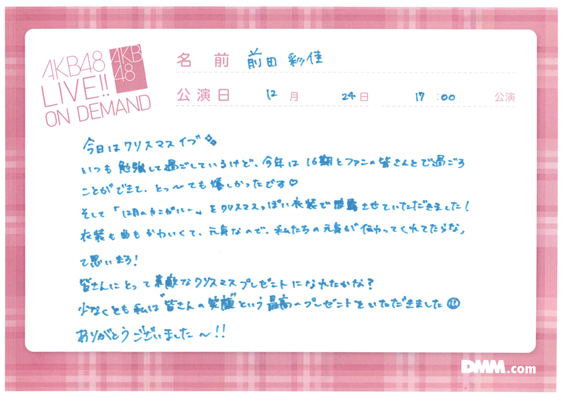 AKB48
LIVE!!
ON DEMAND
AKB
48
名 前 前田 彩佳
公演日 12 月 24 日 17:00 公演
今日はクリスマスイブ
いつも勉強して過ごしているけど、今年は16期とファンの皆さんとで過ごる
ことができて、とっ〜ても嬉しかったです♡
そして「12月のカンガルー」をクリスマスっぽい衣装で披露させていただきました!
衣装も曲もかわいくて、元気なので、私たちの元気が伝わってくれてたらな,
て思いまる!
皆さんにとって素敵なクリスマスプレゼントになれたかな?
少なくとも私は"皆さんの笑顔"という最高のプレゼントをいただきました
ありがとうございました〜!!
DMM.com